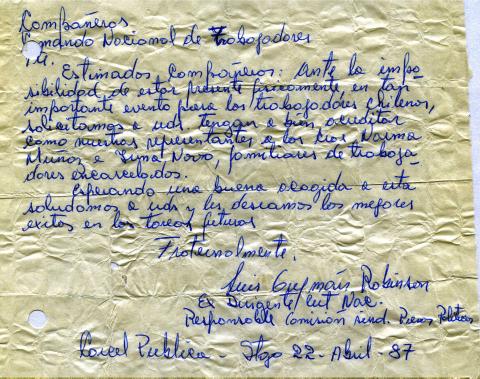 Compañeros
Comando Nacional de Trabajadores
Estimados Compañeros: Ante la impo
sibilidad de estar presente fisicamente en tan
importante evento para los trabajadores chilenos,
solicitamos a uds. tengan a bien acreditar
como nuestras representantes a las cras Norma
Muñoz e Novoo, familiares de trabaja
dores encarcelados.
Esperando una buena acogida a esta
saludamos a uds y les deseamos los mejores
exitos en las tareas futuras
Fraternalmente,
Luis Guzmán Robinson
Ex Dirigente Cut Nac.
Responsable Comisión sind. Presos Politicos
Carcel Publica - Stgo 22 - Abril - 87